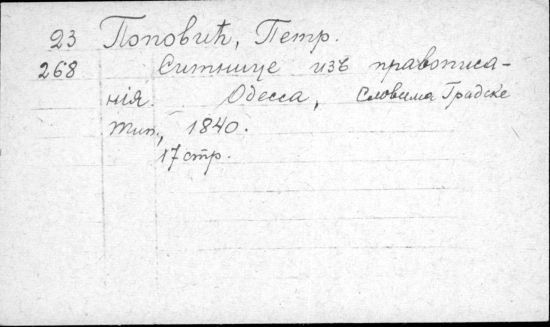 23 Поповић, Петр.
268 Ситнице изъ правописа-
нія. Одесса, Словима Градске
Тип., 1840.
17 стр.